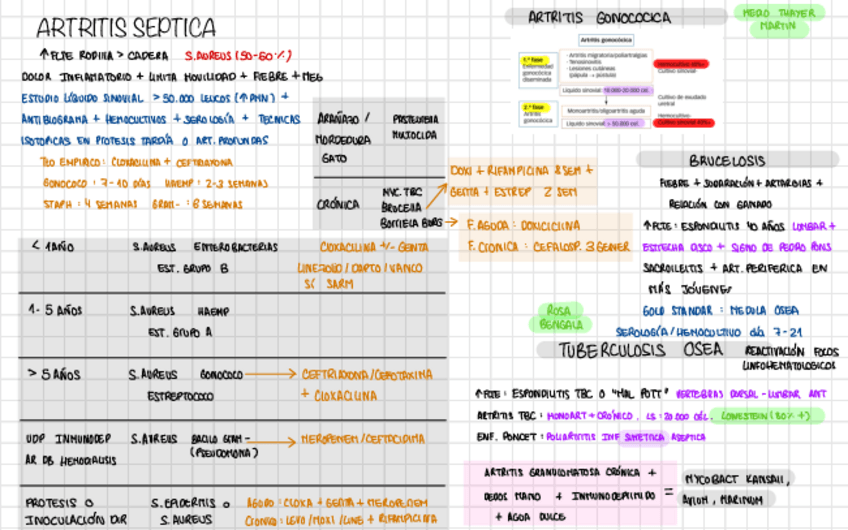 ARTRITIS SEPTICA
↑FCTE RODILLA > CADERA S.AUREUS (50-60%)
DOLOR INFLAMATORIO + LIMITA MOVILIDAD + FIEBRE + MEG
ESTUDIO LÍQUIDO SINOVIAL > 50.000 LEUCOS (↑PMN) +
ANTIBIOGRAMA + HEMOCULTIVOS + SEROLOGÍA + TECNICAS
ISOTOPICAS EN PROTESIS TARDÍA O ART. PROFUNDAS
TTO EMPÍRICO: CLOXACILINA + CEFTRIAXONA
GONOCOCO: 7-10 DÍAS HAEMP: 2-3 SEMANAS
STAPH: 4 SEMANAS GRAM-: 6 SEMANAS
ARAÑAZO / MORDEDURA GATO
PASTEURELLA MULTOCIDA
CRÓNICA
MYC. TBC
BRUCELLA
BORRELIA BURG
DOXI + RIFAMPICINA 8 SEM +
GENTA + ESTREP 2 SEM
F. AGUDA: DOXICICLINA
F. CRONICA: CEFALOSP. 3 GENER
< 1 AÑO S.AUREUS ENTEROBACTERIAS CLOXACILINA +/- GENTA
EST. GRUPO B LINEZOLID / DAPTO / VANCO
SÍ SARM
1- 5 AÑOS S.AUREUS HAEMP
EST. GRUPO A
> 5 AÑOS S.AUREUS GONOCOCO → CEFTRIAXONA/CEFOTAXIMA
ESTREPTOCOCO + CLOXACILINA
UDP INMUNODEP S.AUREUS BACILO GRAM- → MEROPENEM/CEFTACIDIMA
AR DB HEMODIALISIS (PSEUDOMONA)
PROTESIS O S.EPIDERMIS O AGUDO: CLOXA + GENTA + MEROPENEM
INOCULACIÓN DIR S.AUREUS CRONICO: LEVO/MOXI/LINE + RIFAMPICINA
ARTRITIS GONOCOCICA
MEDIO THAYER
MARTIN
Artritis gonocócica
1.ª fase
Enfermedad
gonocócica
diseminada
- Artritis migratoria/poliartralgias
- Tenosinovitis
- Lesiones cutáneas
(pápula → pústula)
Cultivo sinovial
Líquido sinovial 10.000-20.000 cel.
2.ª fase
Artritis
gonocócica
Monoartritis/oligoartritis aguda
Líquido sinovial > 50.000 cel.
Cultivo de exudado
uretral
Hemocultivo
BRUCELOSIS
FIEBRE + SUDORACIÓN + ARTRALGIAS +
RELACIÓN CON GANADO
↑FCTE: ESPONDILITIS 40 AÑOS LUMBAR +
ESTRECHA DISCO + SIGNO DE PEDRO PONS
SACROILEITIS + ART. PERIFERICA EN
MÁS JÓVENES
GOLD STANDAR: MEDULA OSEA
SEROLOGÍA/HEMOCULTIVO día 7-21
ROSA
BENGALA
TUBERCULOSIS OSEA REACTIVACIÓN FOCOS
LINFOHEMATOLOGICOS
↑FCTE: ESPONDILITIS TBC O "MAL POTT" VERTEBRAS DORSAL-LUMBAR ANT
ARTRITIS TBC: MONOART + CRÓNICO. LS: 20.000 CÉL. LOWESTEIN (80% +)
ENF. PONCET: POLIARTRITIS INF SIMETRICA ASEPTICA
ARTRITIS GRANULOMATOSA CRÓNICA +
DEDOS MANO + INMUNODEPRIMIDO
+ AGUA DULCE
= MYCOBACT KANSAII,
AVIUM, MARINUM